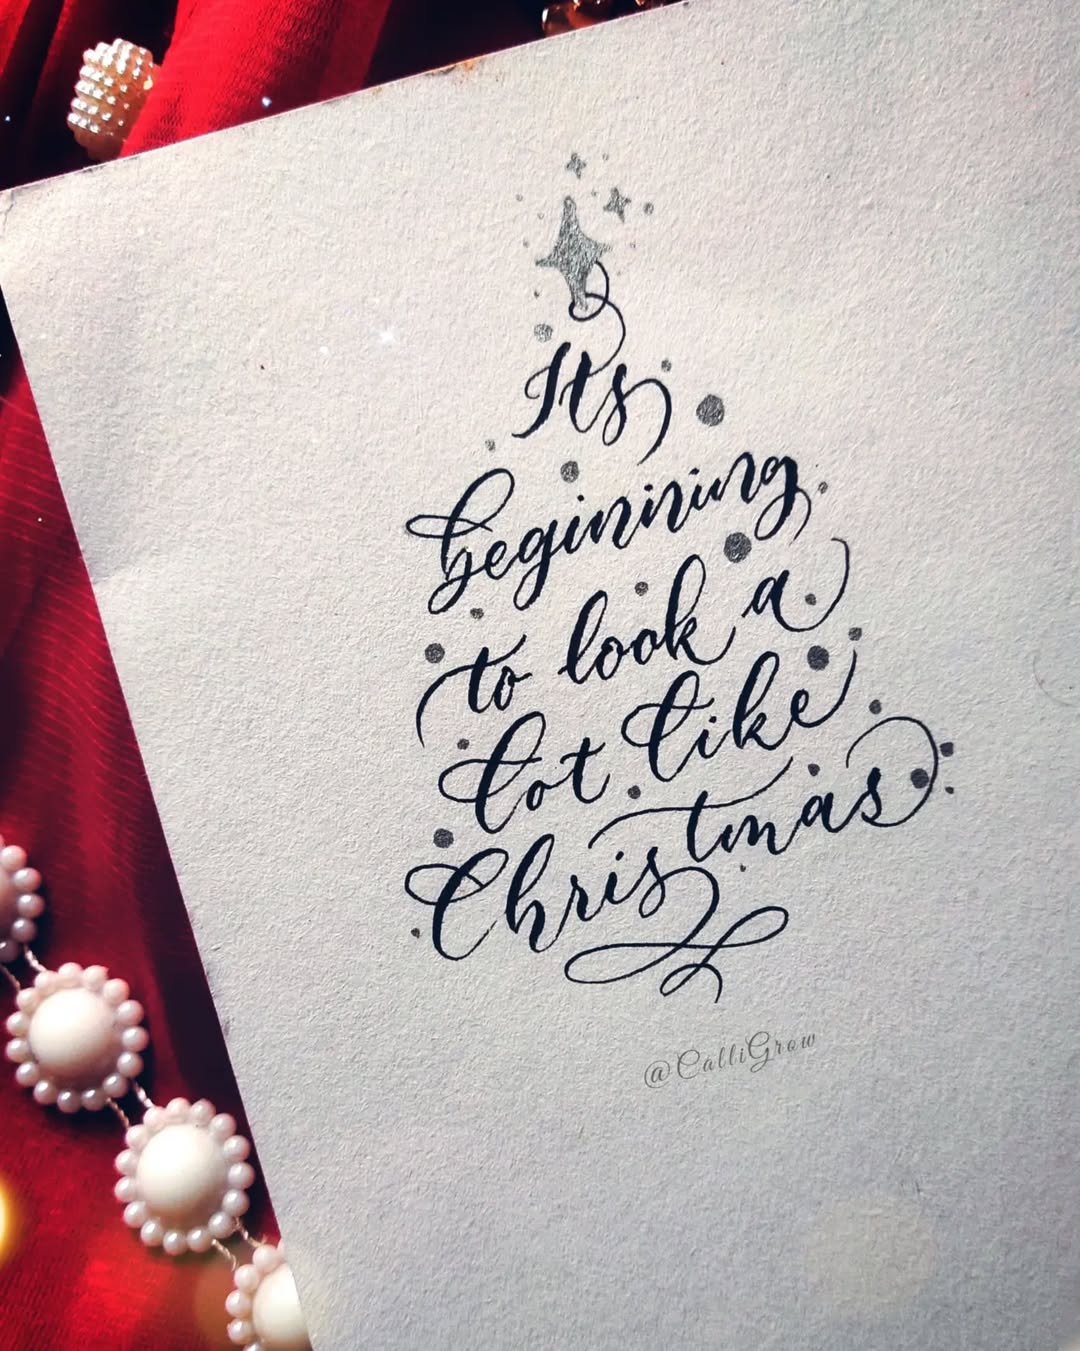 Its
beginning
to look a
lot like
Christmas
@CalliGrow